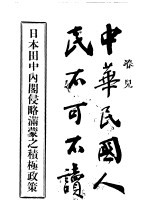 中華民國人
民不可不讀
日本田中內閣侵略滿蒙之積極政策